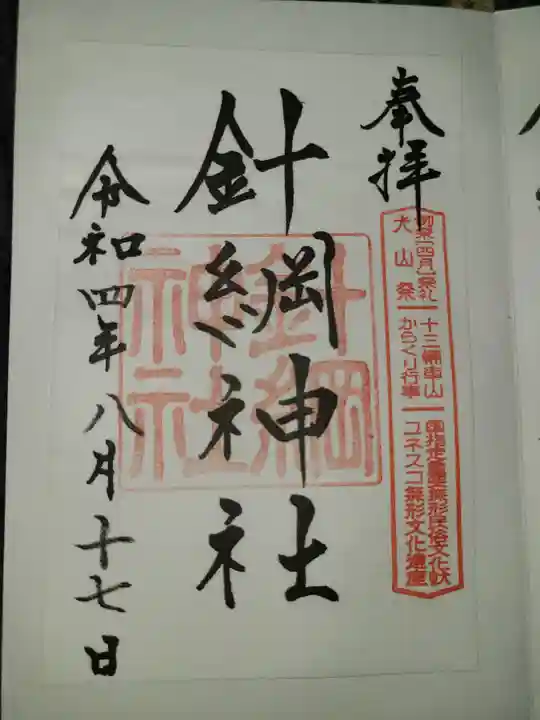 奉拝
例祭「四月」祭礼 十三輛車山 国指定重要無形民俗文化財
犬山祭 からくり行事 ユネスコ無形文化遺産
針綱神社
針綱神社
令和四年八月十七日